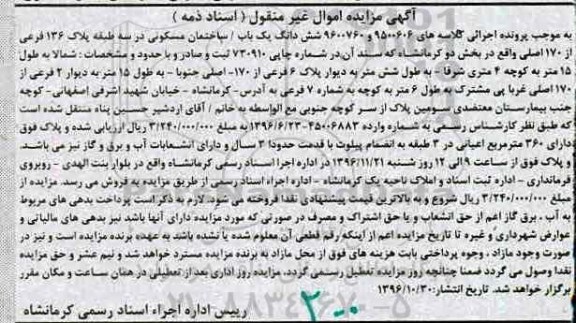 آگهی مزایده اموال غیر منقول ( اسناد ذمه )
به موجب پرونده اجرائی کلاسه های ۹۵۰۰۶۰۶ و ۹۶۰۰۷۶۰ شش دانگ یک باب / ساختمان مسکونی در سه طبقه پلاک ۱۳۶ فرعی
از ۱۷۰ اصلی واقع در بخش دو کرمانشاه که سند آن در شماره چاپی ۷۳۰۹۱۰ ثبت و صادر و با حدود و مشخصات : شمالا به طول
۱۵ متر به کوچه ۴ متری شرقا - به طول شش متر به دیوار پلاک ۶ فرعی از ۱۷۰- اصلی جنوبا - به طول ۱۵ متر به دیوار ۲ فرعی از
۱۷۰ اصلی غربا پی مشترک به طول ۶ متر به کوچه به شماره ۷ فرعی به آدرس - کرمانشاه - خیابان شهید اشرفی اصفهانی- کوچه
جنب بیمارستان معتضدی سومین پلاک از سر کوچه جنوبی مع الواسطه به خانم / آقای اردشیر حسین پناه منتقل شده است
که طبق نظر کارشناس رسمی به شماره وارده ۴۵۰۰۶۸۸۳-۱۳۹۶/۶/۲۳ به مبلغ ۳/۲۴۰/۰۰۰/۰۰۰ ریال ارزیابی شده و پلاک فوق
دارای ۳۶۰ مترمربع اعیانی در ۳ طبقه به انضمام پیلوت با قدمت حدودا ۳ سال و دارای انشعابات آب و برق و گاز نیز می باشد.
و پلاک فوق از ساعت ۹ الی ۱۲ روز شنبه ۱۳۹۶/۱۱/۲۱ در اداره اجرا اسناد رسمی کرمانشاه واقع در بلوار بنت الهدی - روبروی
فرمانداری - اداره ثبت اسناد و املاک ناحیه یک کرمانشاه - اداره اجراء اسناد رسمی از طریق مزایده به فروش می رسد. مزایده از
مبلغ ۳/۲۴۰/۰۰۰/۰۰۰ ریال شروع و به بالاترین قیمت پیشنهادی نقدا فروخته می شود. لازم به ذکر است پرداخت بدهی های مربوط
به آب ، برق گاز اعم از حق انشعاب و یا حق اشتراک و مصرف در صورتی که مورد مزایده دارای آنها باشد نیز بدهی های مالیاتی و
عوارض شهرداری و غیره تا تاریخ مزایده اعم از اینکه رقم قطعی آن معلوم شده یا نشده باشد به عهده برنده مزایده است و نیز در
صورت وجود مازاد ، وجوه پرداختی بابت هزینه های فوق از محل مازاد به برنده مزایده مسترد خواهد شد و نیم عشر و حق مزایده
نقدا وصول می گردد ضمنا چنانچه روز مزایده تعطیل رسمی گردد، مزایده روز اداری بعد از تعطیلی در همان ساعت و مکان مقرر
برگزار خواهد شد. تاریخ انتشار: ۱۳۹۶/۱۰/۳۰
رییس اداره اجراء اسناد رسمی کرمانشاه